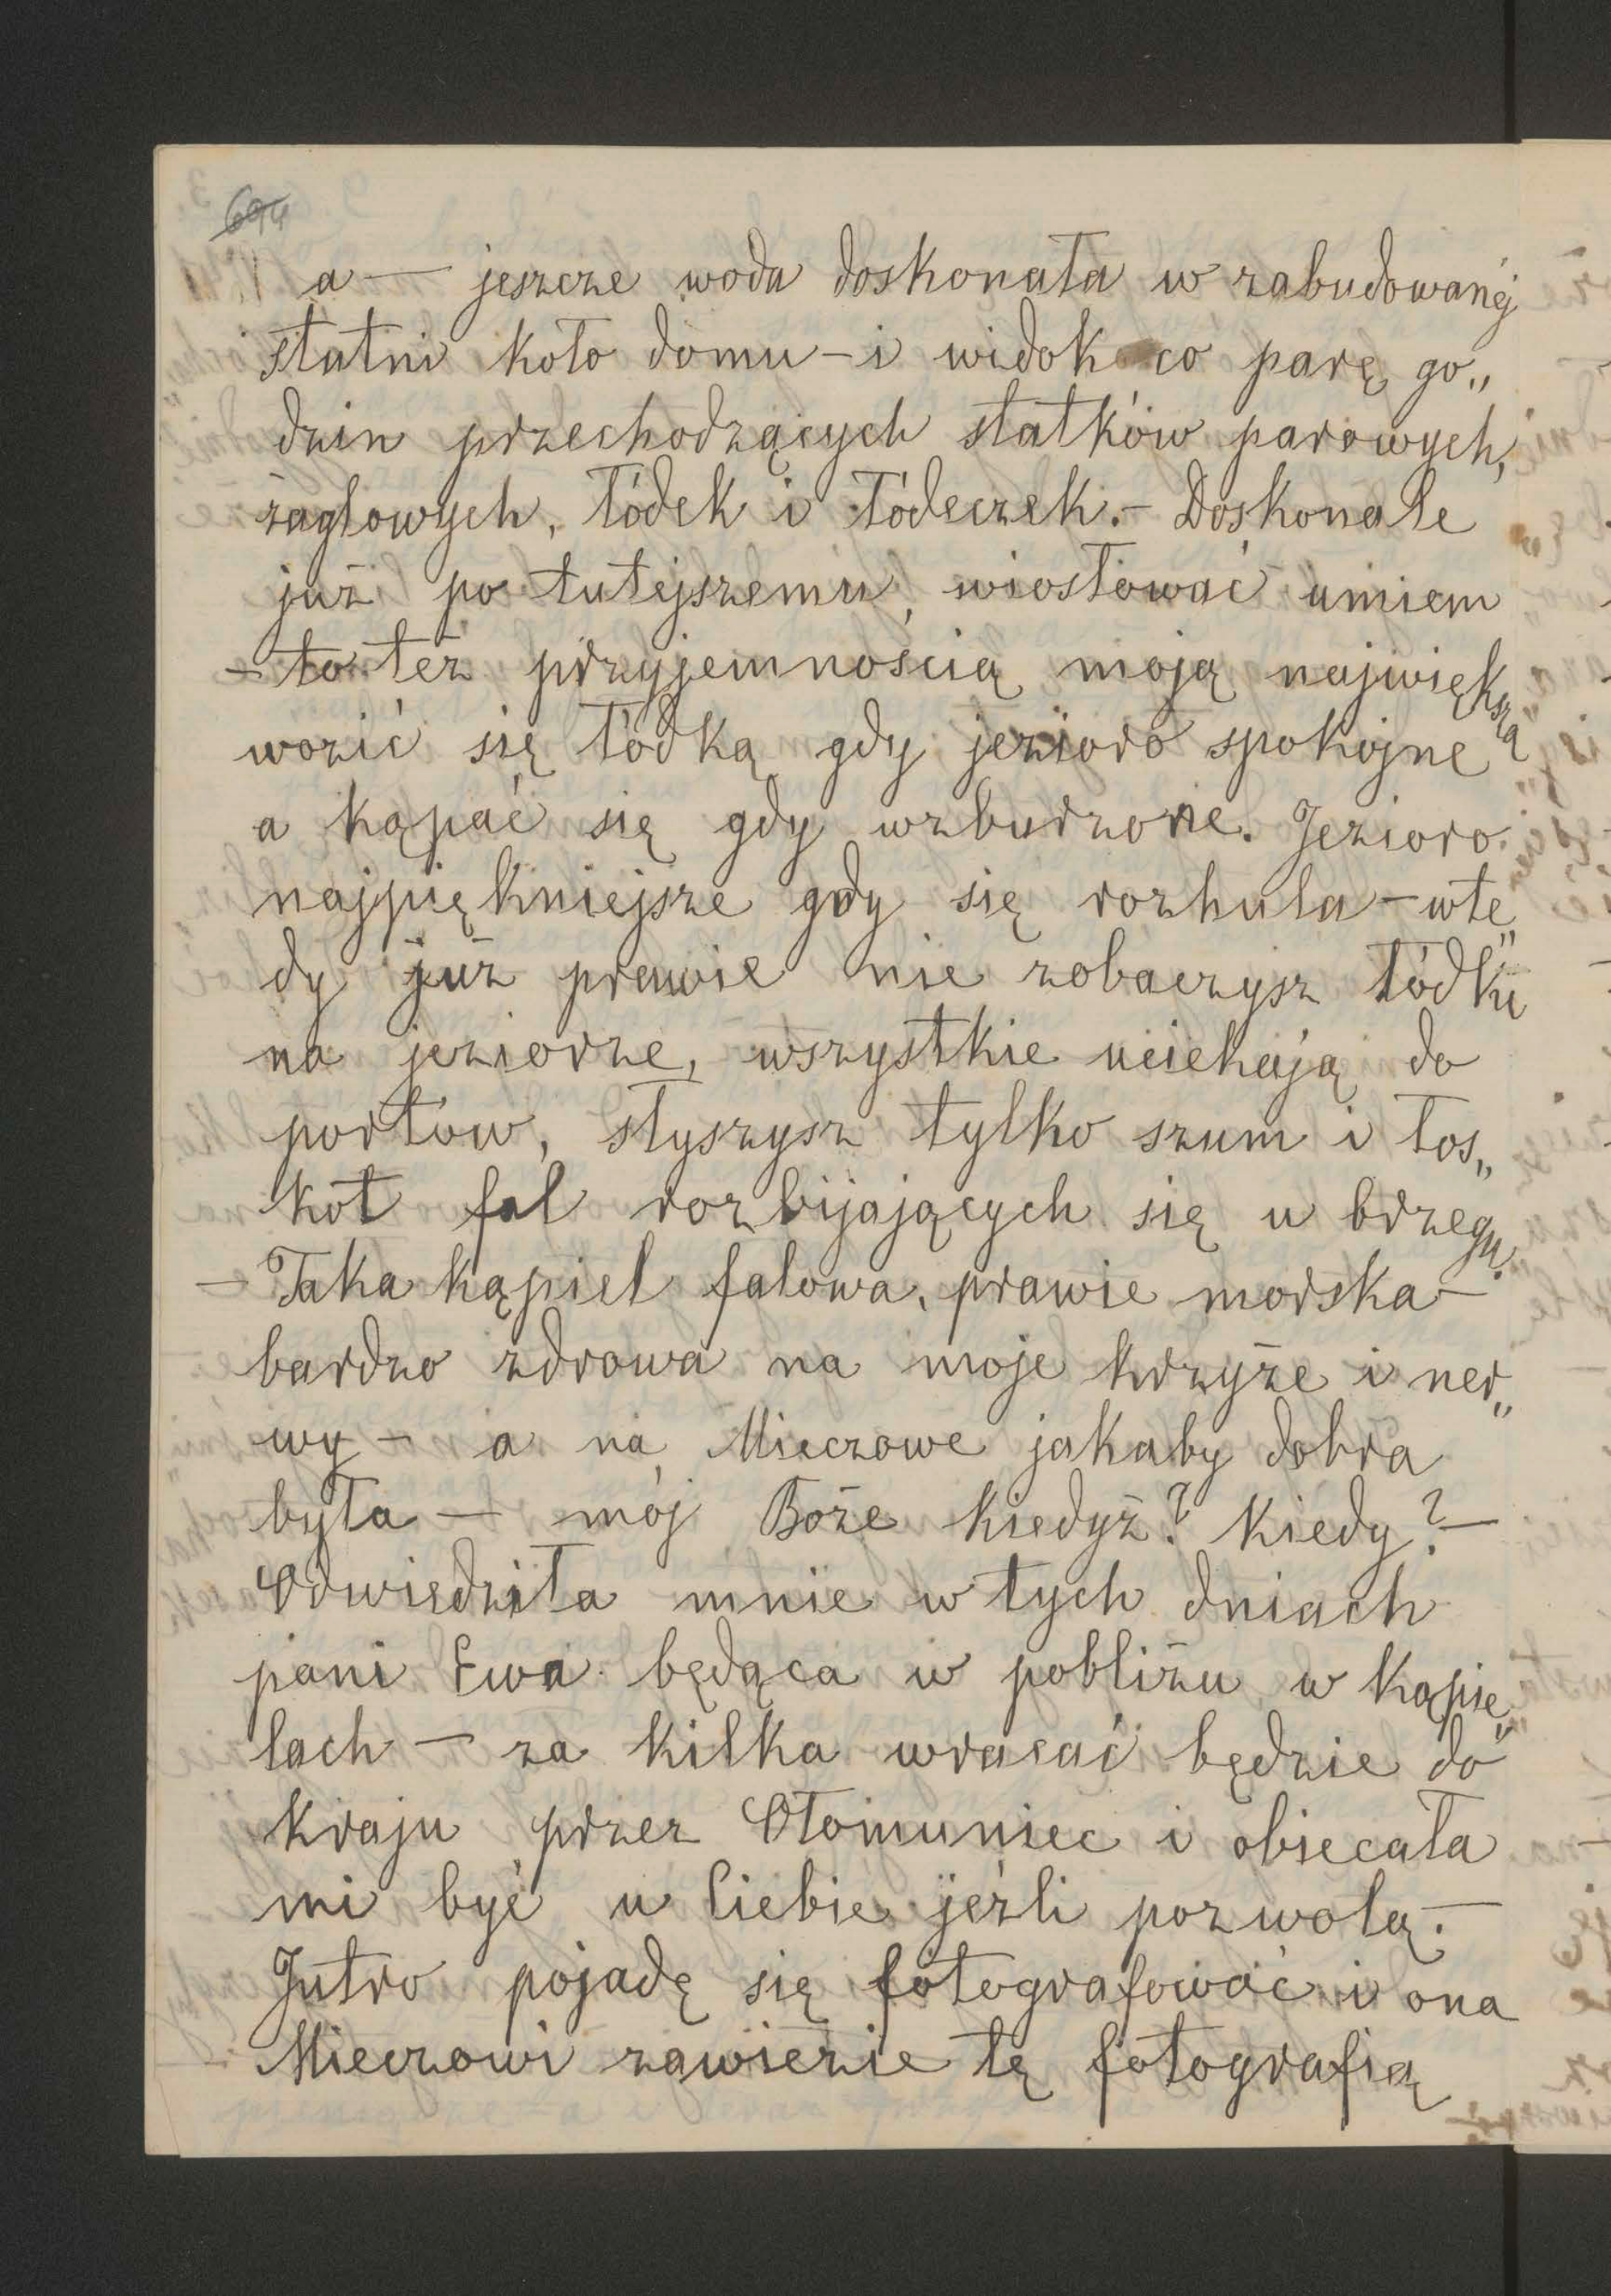 694
a — jeszcze woda doskonała w zabudowanéj
statni koło domu – i widok co parę go„
dzin przechodzących statków parowych,
żaglowych, łódek i łódeczek. – Doskonale
już po tutejszemu wiosłować umiem
– to też przyjemnością moją największą
wozić się łódką gdy jezioro spokojne
a kąpać się gdy wzburzone. Jezioro
najpiękniejsze gdy się rozhula – wte„
dy już prawie nie zobaczysz łódki
na jeziorze, wszystkie uciekają do
portów, słyszysz tylko szum i łos„
kot fal rozbijających się u brzegu.
– Taka kąpiel falowa, prawie morska –
bardzo zdrowa na moje krzyże i ner„
wy – a na Mieczowe jakaby dobra
była – mój Boże kiedyż? kiedy? –
Odwiedziła mnie w tych dniach
pani Ewa będąca w pobliżu w kąpie„
lach – za kilka wracać będzie do
kraju przez Ołomuniec i obiecała
mi być u Ciebie jeźli pozwolą. –
Jutro pojadę się fotografować i ona
Mieczowi zawiezie tę fotografią